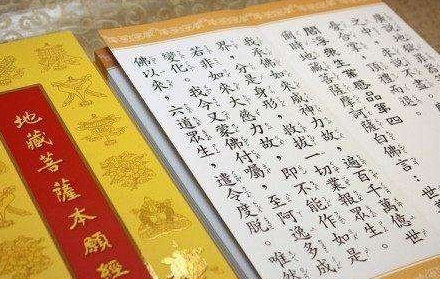 之中，說不能盡。
憂合掌，頂禮而退。
閻浮眾生業感品第四
爾時地藏菩薩摩訶薩白佛言，世
我承佛如來威神力故，遍百千萬億世
界，分是身形，救拔一切業報眾生。
若非如來大慈力故，即不能作如是
變化。我今又蒙佛付囑，至阿逸多成
佛以來，六道眾生，遣令度脫。唯然
地藏菩薩本願經